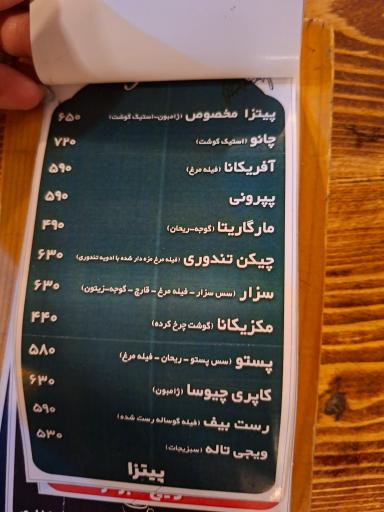 پیتزا مخصوص (ژامبون-استیک گوشت) ۶۵۰
چانو (استیک گوشت) ۷۲۰
آفریکانا (فیله مرغ) ۵۹۰
پپرونی ۵۹۰
مارگاریتا (گوجه-ریحان) ۴۹۰
چیکن تندوری (فیله مرغ مزه دار شده با ادویه تندوری) ۶۳۰
سزار (سس سزار - فیله مرغ - قارچ - گوجه-زیتون) ۶۳۰
مکزیکانا (گوشت چرخ کرده) ۴۴۰
پستو (سس پستو - ریحان - فیله مرغ) ۵۸۰
کاپری چیوسا (ژامبون) ۶۳۰
رست بیف (فیله گوساله رست شده) ۵۹۰
ویجی تاله (سبزیجات) ۵۳۰
پیتزا